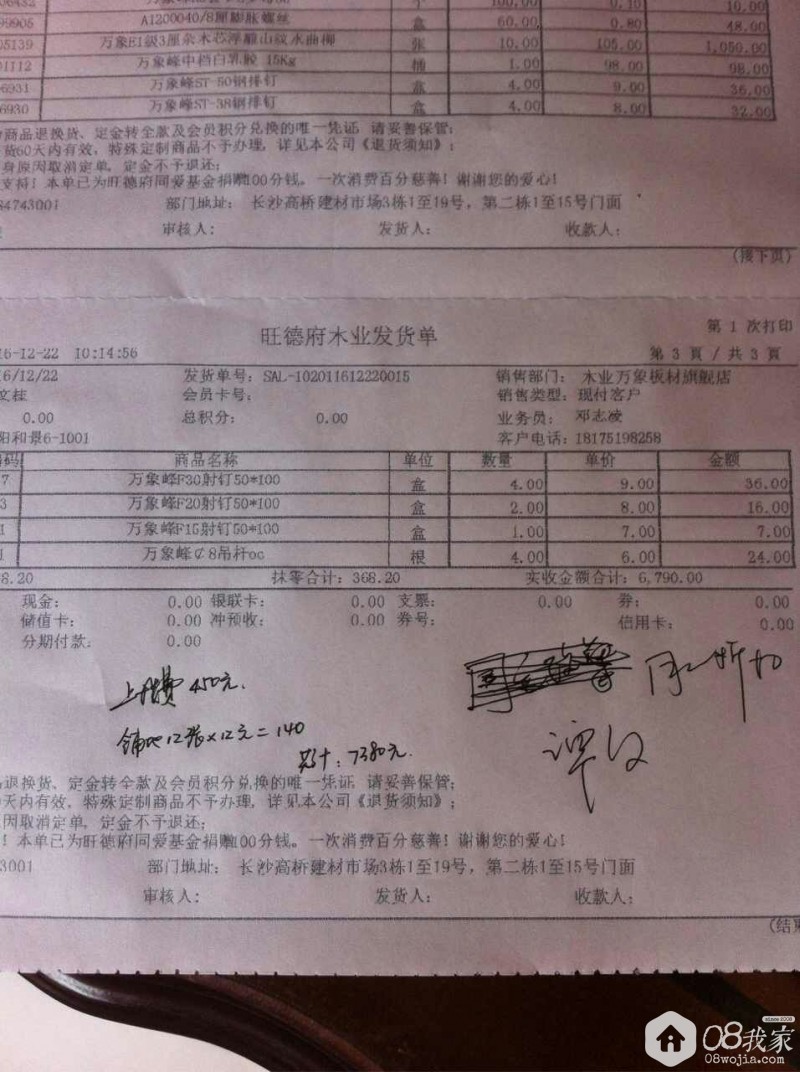 06432 个 100.00 0.10 10.00
99905 A1200040/8厘膨胀螺丝 盒 60.00 0.80 48.00
05139 万象E1级3厘杂木芯浮雕山纹水曲柳 张 10.00 105.00 1,050.00
01112 万象峰中档白乳胶 15Kg 桶 1.00 98.00 98.00
6931 万象峰ST-50钢排钉 盒 4.00 9.00 36.00
6930 万象峰ST-38钢排钉 盒 4.00 8.00 32.00
商品退换货、定金转全款及会员积分兑换的唯一凭证，请妥善保管；
货60天内有效，特殊定制商品不予办理，详见本公司《退货须知》；
身原因取消定单，定金不予退还；
支持！本单已为旺德府同爱基金捐赠100分钱。一次消费百分慈善！谢谢您的爱心！
84743001 部门地址： 长沙高桥建材市场3栋1至19号，第二栋1至15号门面
审核人： 发货人： 收款人：
(接下页)
旺德府木业发货单 第 1 次打印
16-12-22 10:14:56 第 3 页 / 共 3 页
16/12/22 发货单号：SAL-102011612220015 销售部门： 木业万象板材旗舰店
文桂 会员卡号： 销售类型：现付客户
0.00 总积分： 0.00 业务员：邓志凌
阳和景6-1001 客户电话：18175198258
编码 商品名称 单位 数量 单价 金额
7 万象峰F30射钉50*100 盒 4.00 9.00 36.00
3 万象峰F20射钉50*100 盒 2.00 8.00 16.00
1 万象峰F15射钉50*100 盒 1.00 7.00 7.00
1 万象峰¢8吊杆oc 根 4.00 6.00 24.00
8.20 抹零合计：368.20 实收金额合计：6,790.00
现金： 0.00 银联卡： 0.00 支票： 0.00 券： 0.00
储值卡： 0.00 冲预收： 0.00 券号： 信用卡： 0.00
分期付款： 0.00
上楼费 450元.
铺地12张×12元=140
总计：7380元.
退换货、定金转全款及会员积分兑换的唯一凭证，请妥善保管；
0天内有效，特殊定制商品不予办理，详见本公司《退货须知》；
因取消定单，定金不予退还；
！本单已为旺德府同爱基金捐赠100分钱。一次消费百分慈善！谢谢您的爱心！
3001 部门地址： 长沙高桥建材市场3栋1至19号，第二栋1至15号门面
审核人： 发货人： 收款人：
(结束
since 2008
08我家
08wojia.com